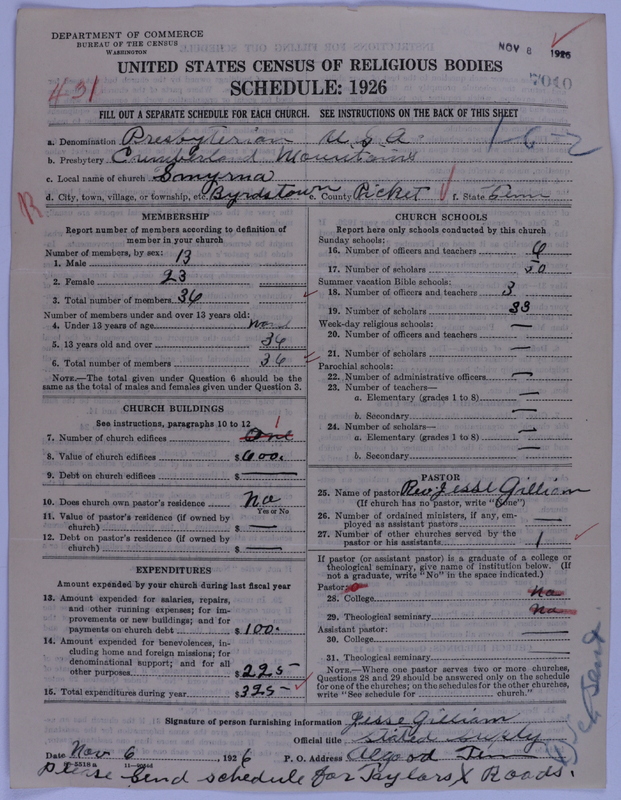 DEPARTMENT OF COMMERCE
BUREAU OF THE CENSUS
WASHINGTON
NOV 8 1926
7040
431
UNITED STATES CENSUS OF RELIGIOUS BODIES
SCHEDULE: 1926
FILL OUT A SEPARATE SCHEDULE FOR EACH CHURCH. SEE INSTRUCTIONS ON THE BACK OF THIS SHEET
a. Denomination Presbyterian U.S.A.
1-6-2
b. Presbytery Cumberland Mountains
c. Local name of church Smyrna
d. City, town, village, or township, etc. Byrdstown e. County Picket f. State Tenn
R
MEMBERSHIP
Report number of members according to definition of member in your church
Number of members, by sex:
1. Male 13
2. Female 23
3. Total number of members 36
Number of members under and over 13 years old:
4. Under 13 years of age None
5. 13 years old and over 36
6. Total number of members 36
NOTE.—The total given under Question 6 should be the same as the total of males and females given under Question 3.
CHURCH BUILDINGS
See instructions, paragraphs 10 to 12
7. Number of church edifices One 1
8. Value of church edifices $600.
9. Debt on church edifices $ —
10. Does church own pastor's residence No
Yes or No
11. Value of pastor's residence (if owned by church) $ —
12. Debt on pastor's residence (if owned by church) $ —
EXPENDITURES
Amount expended by your church during last fiscal year
13. Amount expended for salaries, repairs, and other running expenses; for improvements or new buildings; and for payments on church debt $100.
14. Amount expended for benevolences, including home and foreign missions; for denominational support; and for all other purposes $225-
15. Total expenditures during year $325-
CHURCH SCHOOLS
Report here only schools conducted by this church
Sunday schools:
16. Number of officers and teachers 6
17. Number of scholars 50
Summer vacation Bible schools:
18. Number of officers and teachers 3
19. Number of scholars 33
Week-day religious schools:
20. Number of officers and teachers —
21. Number of scholars —
Parochial schools:
22. Number of administrative officers —
23. Number of teachers—
a. Elementary (grades 1 to 8) —
b. Secondary —
24. Number of scholars—
a. Elementary (grades 1 to 8) —
b. Secondary —
PASTOR
25. Name of pastor Rev. Jesse Gilliam
(If church has no pastor, write "None")
26. Number of ordained ministers, if any, employed as assistant pastors —
27. Number of other churches served by the pastor or his assistants 1
If pastor (or assistant pastor) is a graduate of a college or theological seminary, give name of institution below. (If not a graduate, write "No" in the space indicated.)
Pastor:
28. College No
29. Theological seminary No
Assistant pastor:
30. College —
31. Theological seminary —
NOTE.—Where one pastor serves two or more churches, Questions 28 and 29 should be answered only on the schedule for one of the churches; on the schedules for the other churches, write "See schedule for ........ church."
Signature of person furnishing information Jesse Gilliam
Official title Stated Supply
Date Nov 6, 1926 P. O. Address Algood Tenn
Please send schedule for Taylors X Roads.